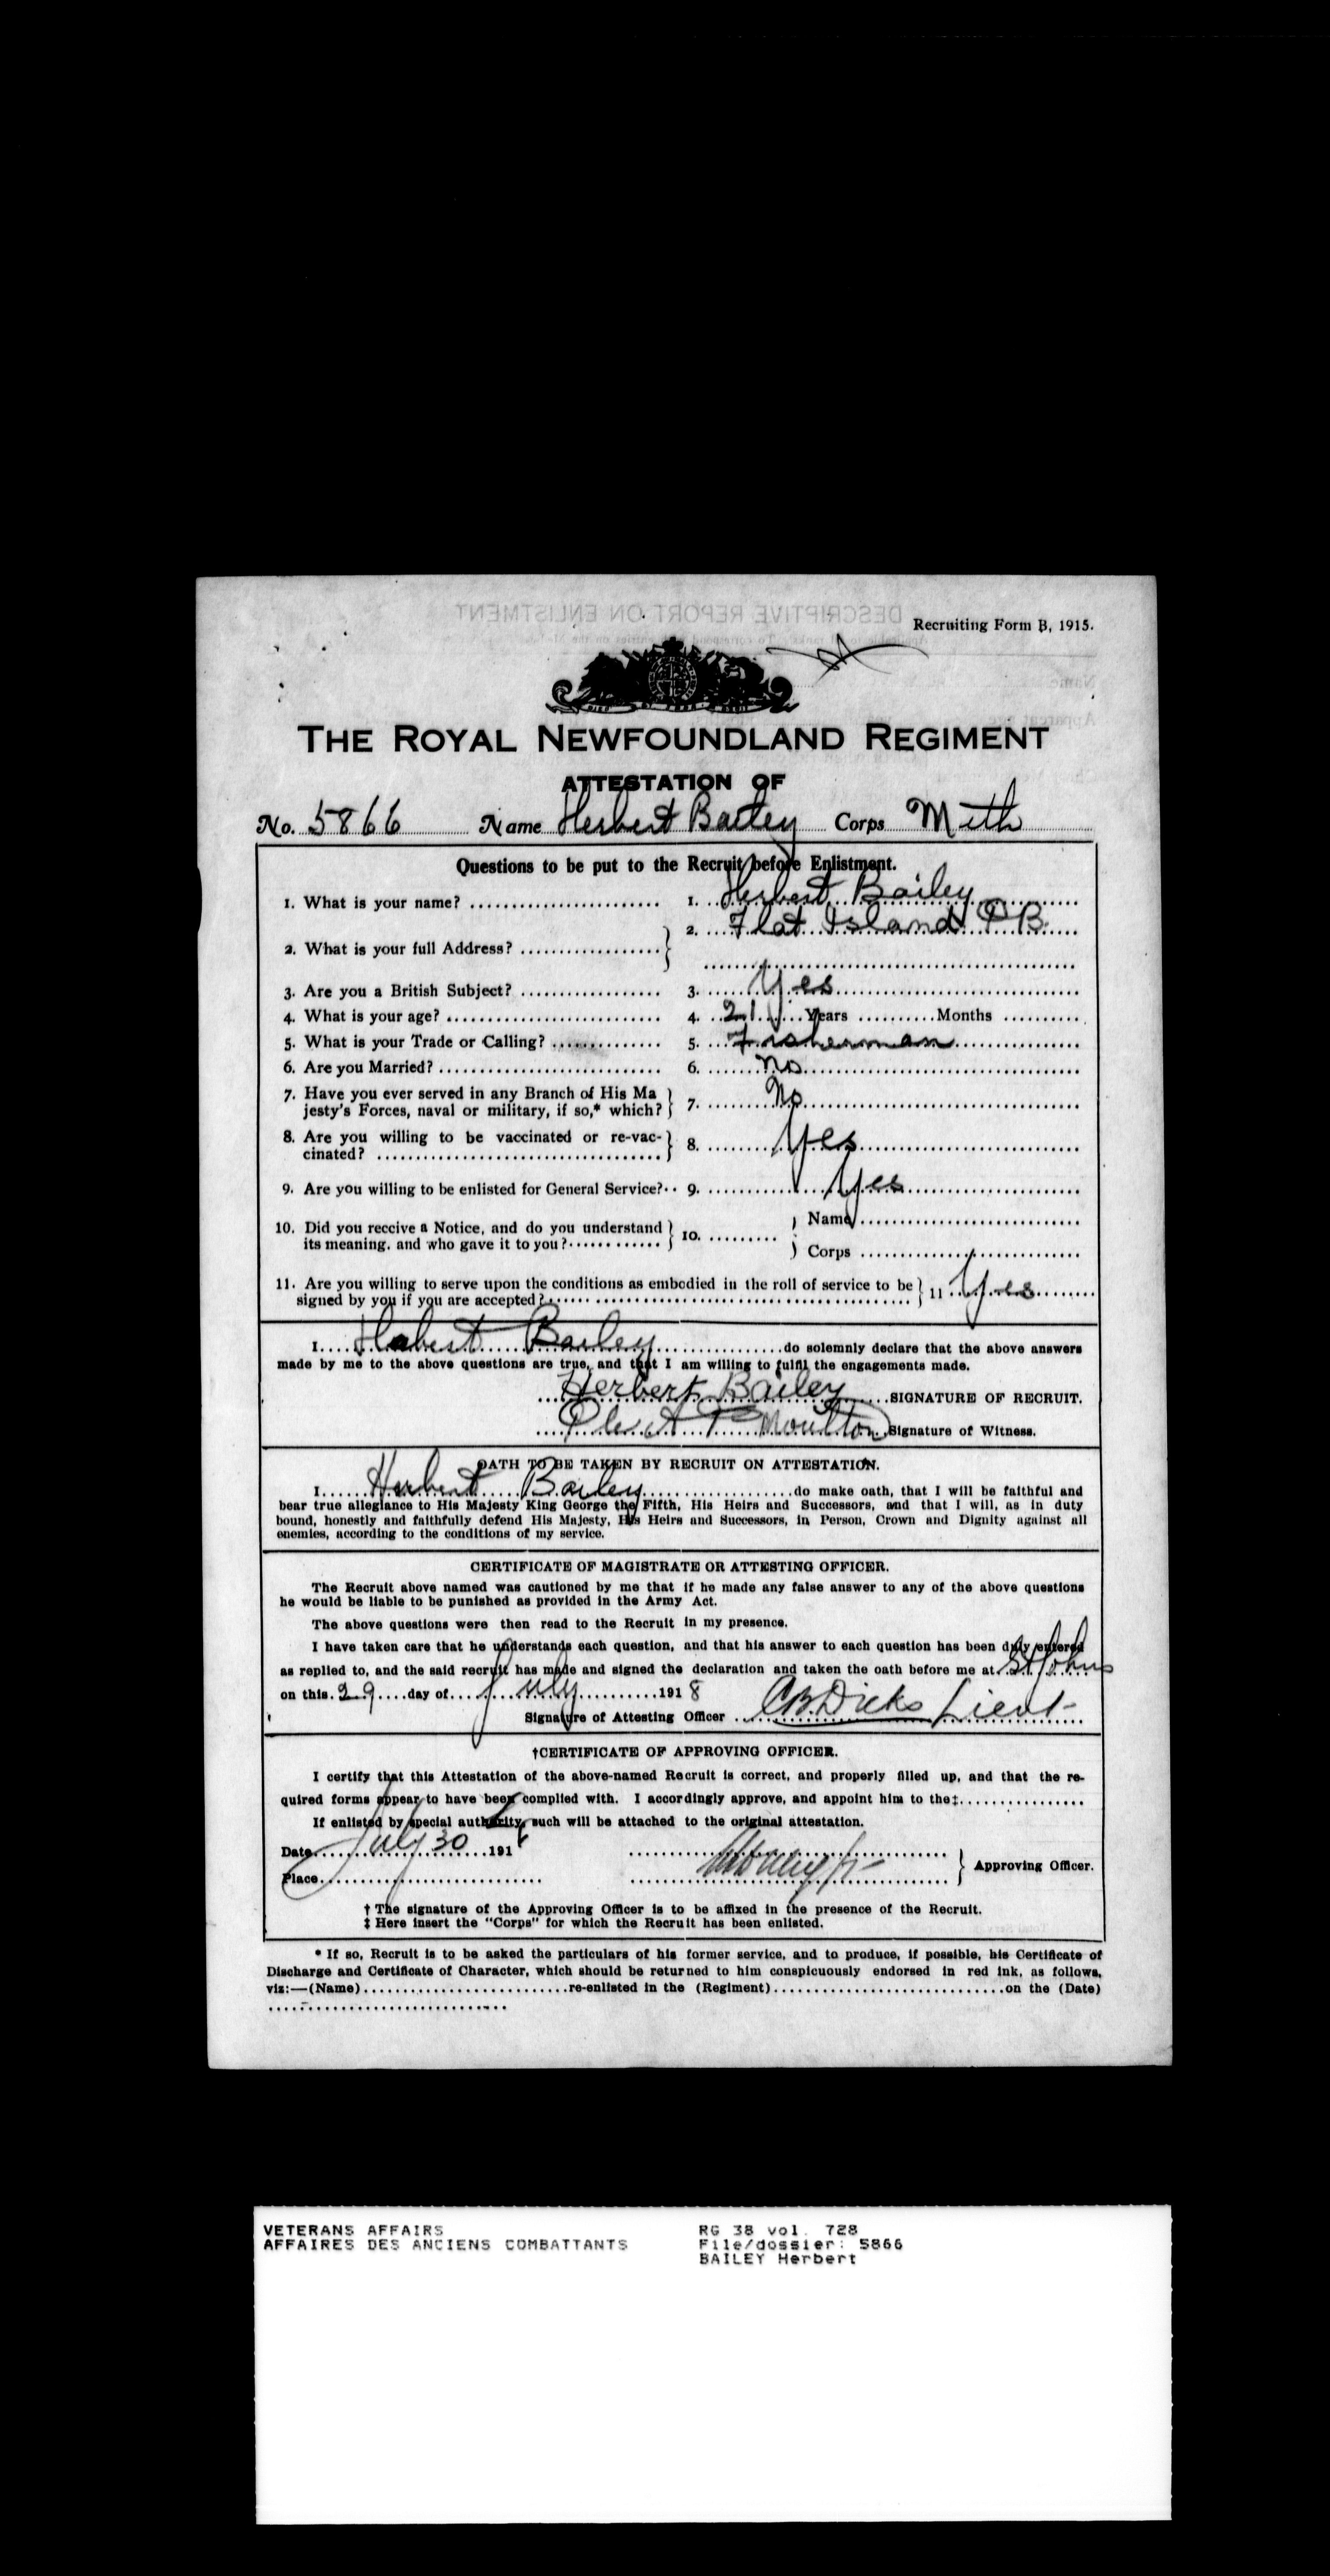 DESCRIPTIVE REPORT ON ENLISTMENT
Recruiting Form B, 1915.
THE ROYAL NEWFOUNDLAND REGIMENT
ATTESTATION OF
No. 5866 Name Herbert Bailey Corps Meth
Questions to be put to the Recruit before Enlistment.
1. What is your name? 1. Herbert Bailey
2. What is your full Address? 2. Flat Island P B.
3. Are you a British Subject? 3. Yes
4. What is your age? 4. 21 Years Months
5. What is your Trade or Calling? 5. Fisherman
6. Are you Married? 6. No
7. Have you ever served in any Branch of His Ma
jesty's Forces, naval or military, if so,* which? 7. No
8. Are you willing to be vaccinated or re-vac-
cinated? 8. Yes
9. Are you willing to be enlisted for General Service? 9. Yes
10. Did you receive a Notice, and do you understand
its meaning. and who gave it to you? 10. Name
Corps
11. Are you willing to serve upon the conditions as embodied in the roll of service to be
signed by you if you are accepted? 11 Yes
I Herbert Bailey do solemnly declare that the above answers
made by me to the above questions are true, and that I am willing to fulfil the engagements made.
Herbert Bailey SIGNATURE OF RECRUIT.
Pte A P Moulton Signature of Witness.
OATH TO BE TAKEN BY RECRUIT ON ATTESTATION.
I Herbert Bailey do make oath, that I will be faithful and
bear true allegiance to His Majesty King George the Fifth, His Heirs and Successors, and that I will, as in duty
bound, honestly and faithfully defend His Majesty, His Heirs and Successors, in Person, Crown and Dignity against all
enemies, according to the conditions of my service.
CERTIFICATE OF MAGISTRATE OR ATTESTING OFFICER.
The Recruit above named was cautioned by me that if he made any false answer to any of the above questions
he would be liable to be punished as provided in the Army Act.
The above questions were then read to the Recruit in my presence.
I have taken care that he understands each question, and that his answer to each question has been duly entered
as replied to, and the said recruit has made and signed the declaration and taken the oath before me at St Johns
on this 29 day of July 1918
Signature of Attesting Officer CB Dicks Lieut
†CERTIFICATE OF APPROVING OFFICER.
I certify that this Attestation of the above-named Recruit is correct, and properly filled up, and that the re-
quired forms appear to have been complied with. I accordingly approve, and appoint him to the‡
If enlisted by special authority, such will be attached to the original attestation.
Date July 30 1918
Place Approving Officer.
† The signature of the Approving Officer is to be affixed in the presence of the Recruit.
‡ Here insert the "Corps" for which the Recruit has been enlisted.
* If so, Recruit is to be asked the particulars of his former service, and to produce, if possible, his Certificate of
Discharge and Certificate of Character, which should be returned to him conspicuously endorsed in red ink, as follows,
viz:—(Name) re-enlisted in the (Regiment) on the (Date)
VETERANS AFFAIRS RG 38 vol. 728
AFFAIRES DES ANCIENS COMBATTANTS File/dossier: 5866
BAILEY Herbert